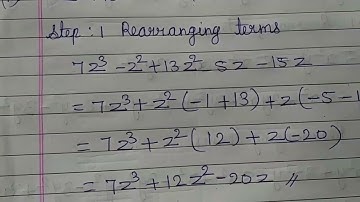 Step : 1 Rearranging terms
7z³ - z² + 13z² 5z - 15z
= 7z³ + z² (-1 + 13) + z (-5 - 1
= 7z³ + z² (12) + z (-20)
= 7z³ + 12z² - 20z //